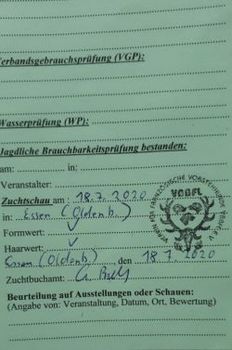 Verbandsgebrauchsprüfung (VGP):
Wasserprüfung (WP):
Jagdliche Brauchbarkeitsprüfung bestanden:
am: in:
Veranstalter:
Zuchtschau am : 18.7.2020
in: Essen (Oldenb.)
Formwert: ✓
Haarwert: ✓
Essen (Oldenb.), den 18 7 2020
Zuchtbuchamt:
VCBFL
Beurteilung auf Ausstellungen oder Schauen:
(Angabe von: Veranstaltung, Datum, Ort, Bewertung)